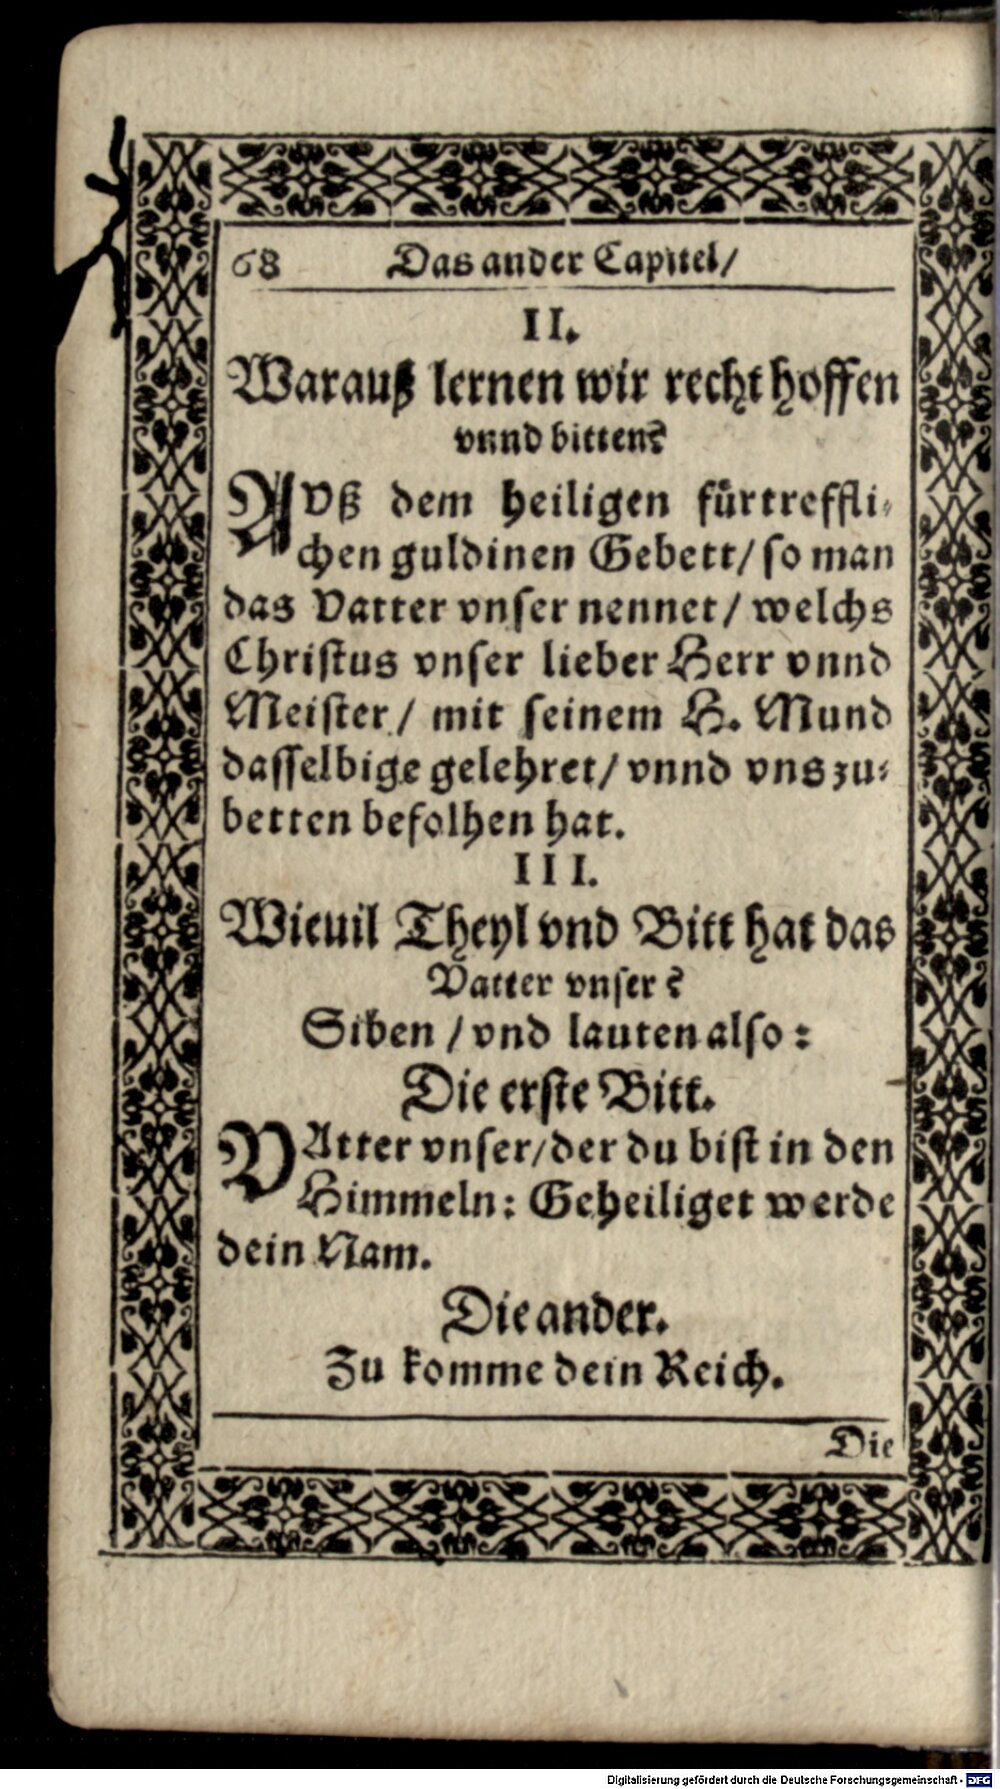 68 Das ander Capitel/
II.
Warauß lernen wir recht hoffen
vnnd bitten?
AVß dem heiligen fürtreffli⸗
chen guldinen Gebett/ so man
das Vatter vnser nennet/ welchs
Christus vnser lieber Herr vnnd
Meister/ mit seinem H. Mund
dasselbige gelehret/ vnnd vns zu⸗
betten befolhen hat.
III.
Wieuil Theyl vnd Bitt hat das
Vatter vnser?
Siben / vnd lauten also:
Die erste Bitt.
VAtter vnser/ der du bist in den
Himmeln: Geheiliget werde
dein Nam.
Die ander.
Zu komme dein Reich.
Die
Digitalisierung gefördert durch die Deutsche Forschungsgemeinschaft - DFG